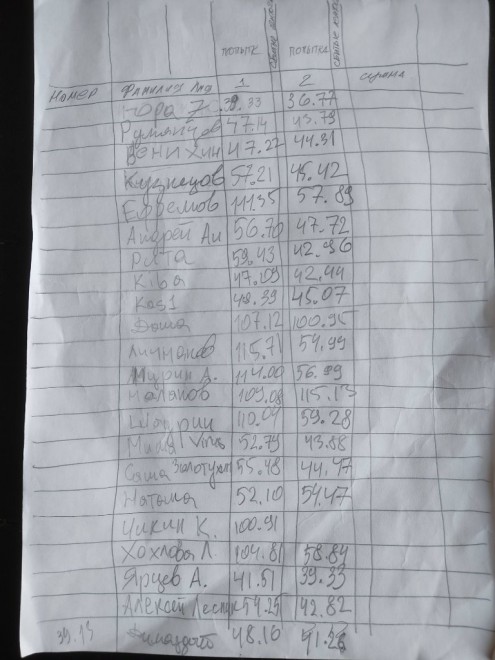 попытка попытка
номер Фамилия Имя 1 2 сумма
Юра 39.33 36.77
Румянцов 47.14 43.79
Вени Хин 47.27 44.31
Кузнецов 57.21 45.42
Ефремов 111.35 57.89
Андрей Ан 56.70 47.72
Рита 59.43 42.96
Kiba 47.09 42.44
Kos1 48.39 45.07
Даша 107.12 100.95
115.71 54.99
Мурин А. 114.00 56.99
Малахов 109.08 115.13
Шаврин 110.09 59.28
52.79 43.88
Саша Золотухин 55.48 44.47
Наташа 52.10 54.47
Чикин К. 100.91
Хохлова Л. 104.81 58.84
Ярцев А. 41.51 39.33
Алексей 54.25 42.82
39.13 48.10 41.28